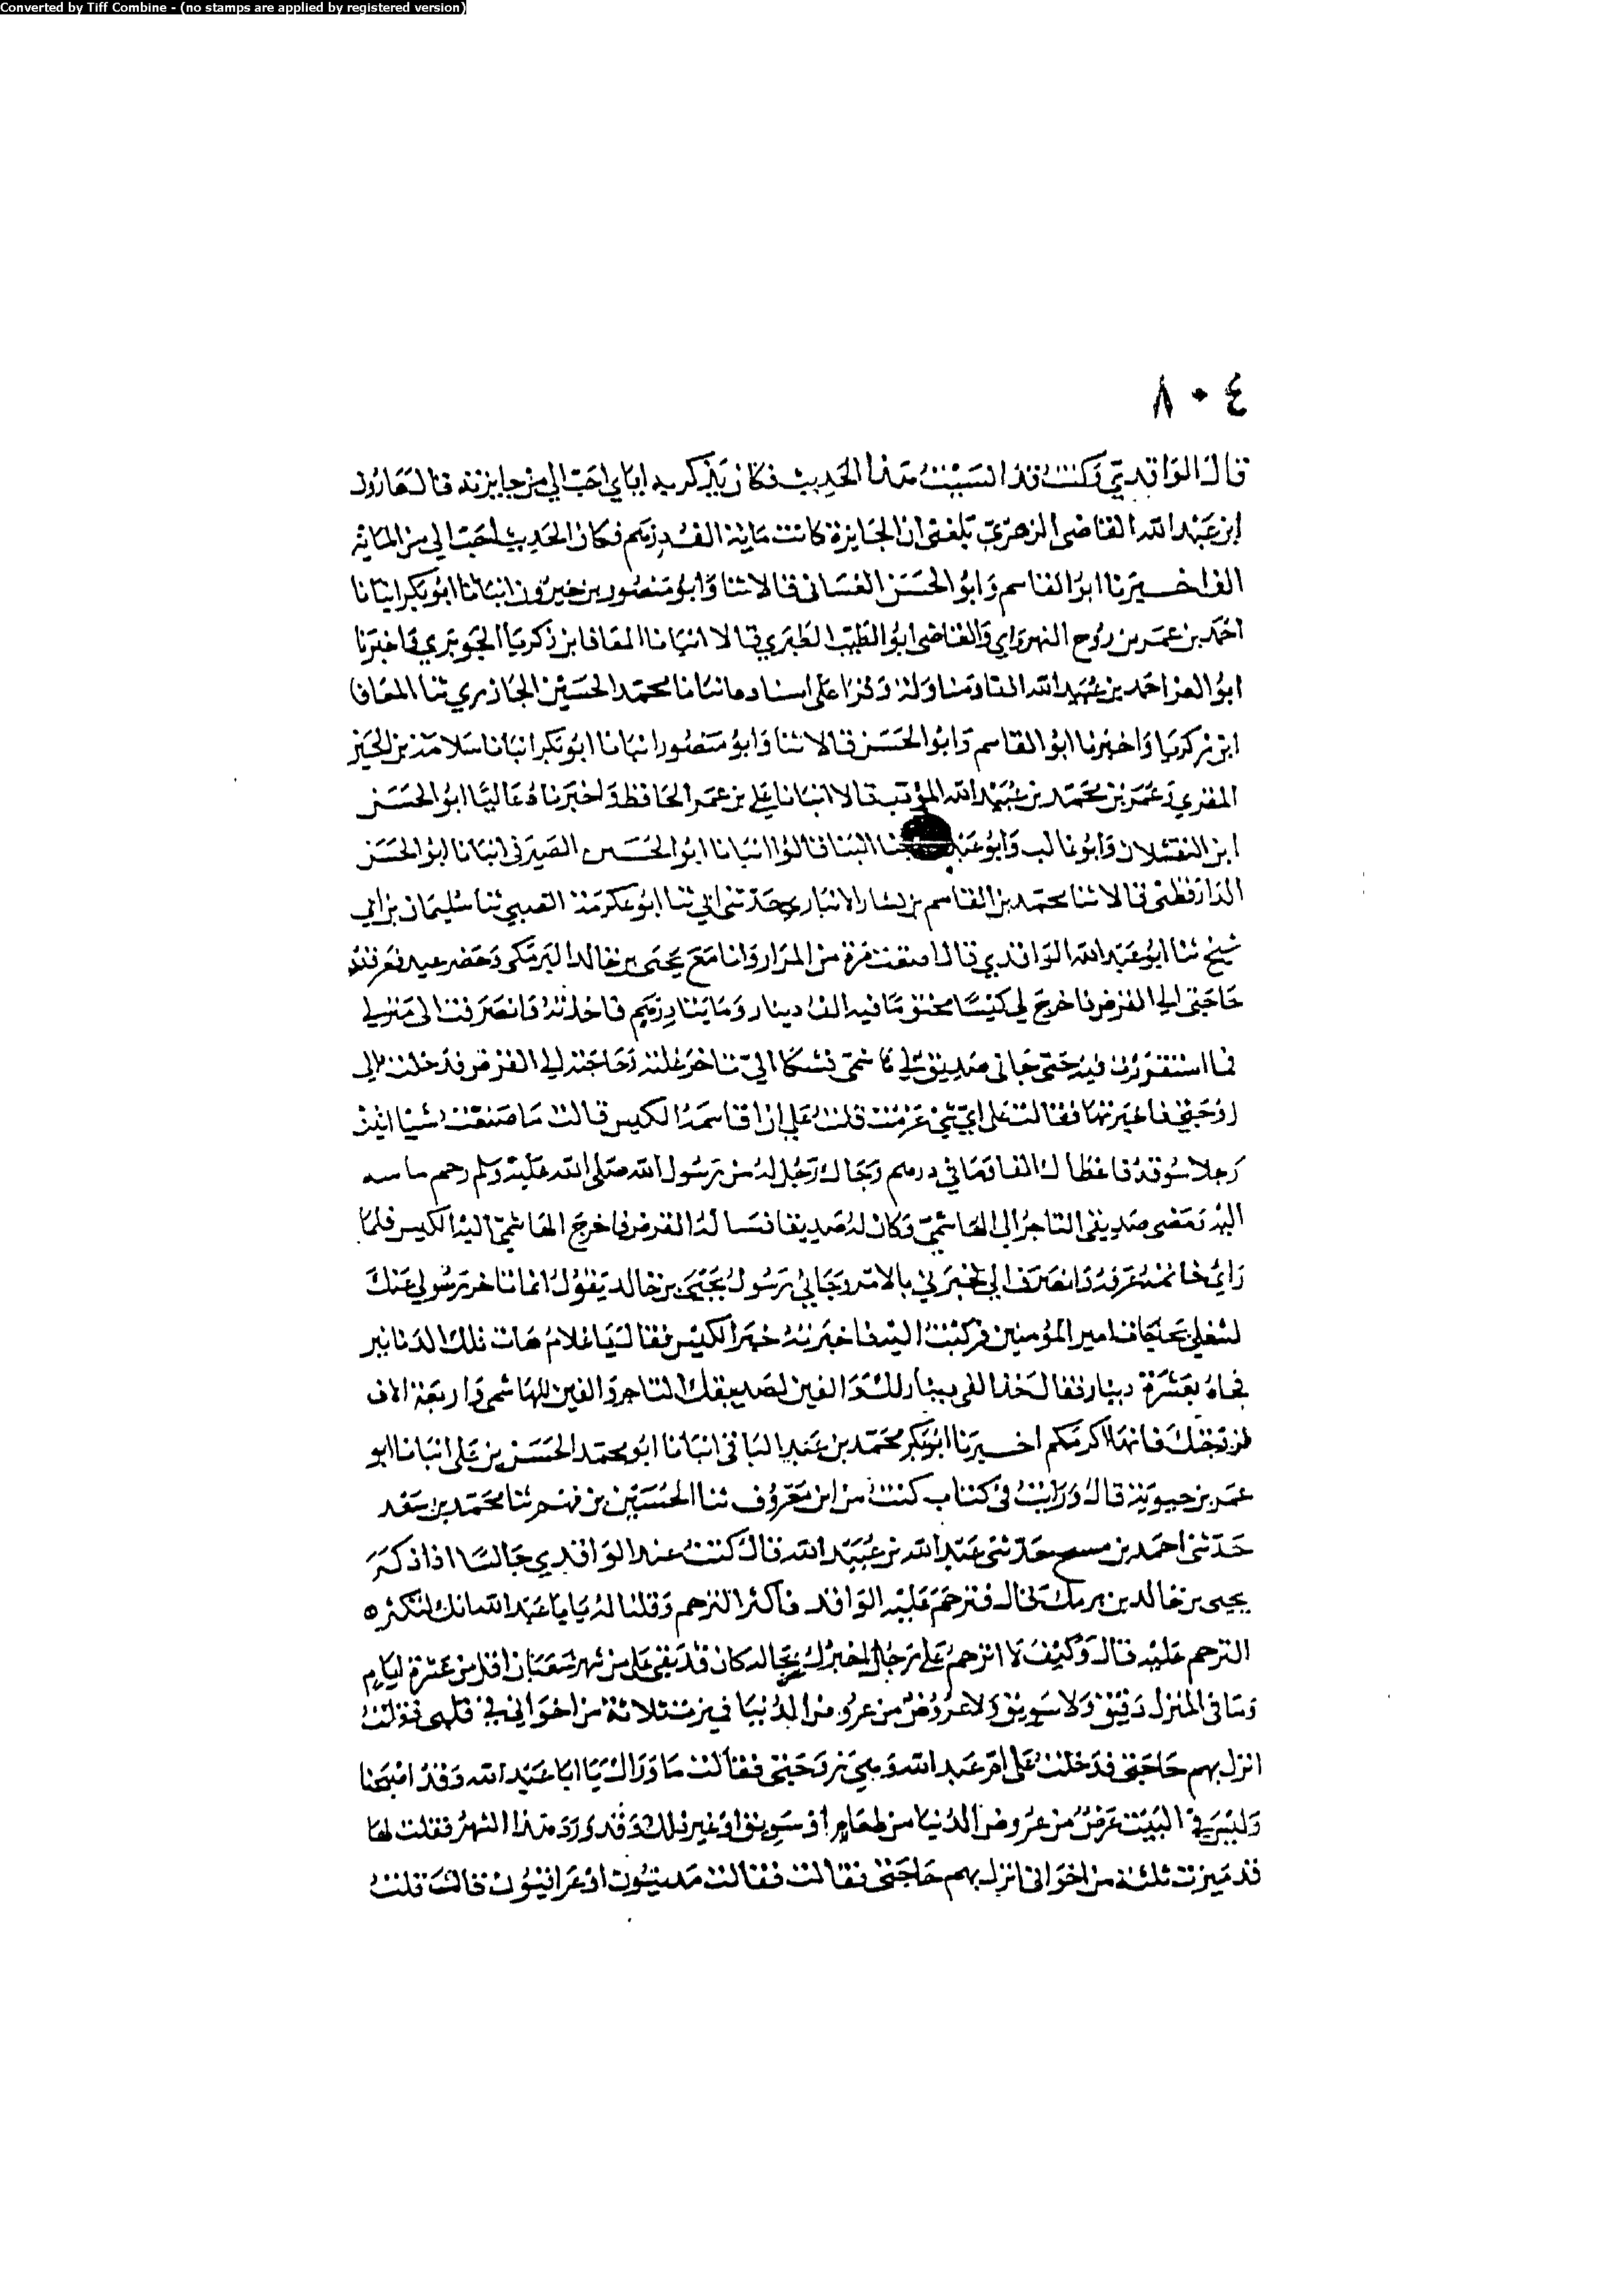 Converted by Tiff Combine - (no stamps are applied by registered version)
٨٠٤
قال الواقدي وكنت قد انسيت هذا الحديث فكان تذكريه اياي احب الي من جايزته قال هارون
ابن عبد الله القاضي الزهري بلغني ان الجايزة كانت ماية الف درهم فكان الحديث احب الي من الماية
الف اخبرنا ابو القاسم وابو الحسن الغساني قالا ثنا وابو منصور بن خيرون انبانا ابو بكر انبانا
احمد بن عمر بن روح النهرواني والقاضي ابو الطيب الطبري قالا انبانا المعافا بن زكريا الجريري واخبرنا
ابو العز احمد بن عبيد الله مناولة وقرا على اسناده انبانا محمد الحسين الجازري ثنا المعافا
ابن زكريا واخبرنا ابو القاسم وابو الحسن قالا ثنا وابو منصور انبانا ابو بكر انبانا سلامة بن
المقري وعمر بن محمد بن عبيد الله المؤدب قالا انبانا علي بن عمر الحافظ واخبرناه عاليا ابو الحسن
ابن النقشلان وابو غالب وابو البنا قالوا انبانا ابو الحسين الصيرفي انبانا ابو الحسن
الدارقطني قالا ثنا محمد بن القاسم بن بشار الانباري حدثني ابي ثنا ابو عكرمة الضبي ثنا سليمان بن ابي
شيخ ثنا ابو عبد الله الواقدي قال اضقت مرة من المرار وانا مع يحيى بن خالد البرمكي وحضر عيد فعرفته
حاجتي الى القرض فاخرج لي كيسا مختوما فيه الف دينار ومايتا درهم فاخذته وانصرفت الى منزلي
فما استقررت فيه حتى جاني صديق لي هاشمي فشكا الي تاخر غلته وحاجته الى القرض فدخلت الى
زوجتي فاخبرتها فقالت على اي شي عزمت قلت على ان اقاسمه الكيس قالت ما صنعت شيا اتيت
رجلا سوقه فاعطاك الفا ومايتي درهم وجاك رجل له من رسول الله صلى الله عليه وسلم رحم ماسه
اليه ومضى صديقي التاجر الى الهاشمي وكان له صديقا فساله القرض فاخرج الهاشمي اليه الكيس فلما
راى خاتمه عرفه وانصرف الي فخبرني بالامر وجاني رسول يحيى بن خالد يقول انما تاخر رسولي عنك
لشغلي بحاجات امير المؤمنين فركبت اليه فاخبرته خبر الكيس فقال يا غلام هات تلك الدنانير
فجاه بعشرة دينار فقال خذ الفي دينار لك والفين لصديقك التاجر والفين للهاشمي واربعة الاف
لزوجتك فانها اكرمكم اخبرنا ابو بكر محمد بن عبد الباقي انبانا ابو محمد الحسن بن علي انبانا ابو
عمر بن حيوية قال ورايت في كتاب كنت من ابن معروف ثنا الحسين بن فهم ثنا محمد بن سعد
حدثني احمد بن مسبح حدثني عبد الله بن عبيد الله قال كنت عند الواقدي جالسا اذ ذكر
يحيى بن خالد بن برمك قال فترحم عليه الواقدي فاكثر الترحم وقلنا له يا ابا عبد الله انك لتكثر
الترحم عليه قال وكيف لا اترحم على رجل اخبرك بحاله كان قد بقي علي من شهر شعبان اقل من عشرة ايام
وما في المنزل دقيق ولا سويق ولا عروض من عروض الدنيا فميزت ثلاثة من اخواني في قلبي فقلت
انزل بهم حاجتي فدخلت على ام عبد الله وهي زوجتي فقالت ما وراك يا ابا عبد الله وقد اصبحنا
وليس في البيت عرض من عروض الدنيا من طعام او سويق او غير ذلك وقد ورد هذا الشهر فقلت لها
قد ميزت ثلثة من اخواني انزل بهم حاجتي فقالت فقالت مدنيون او عراقيون قال قلت